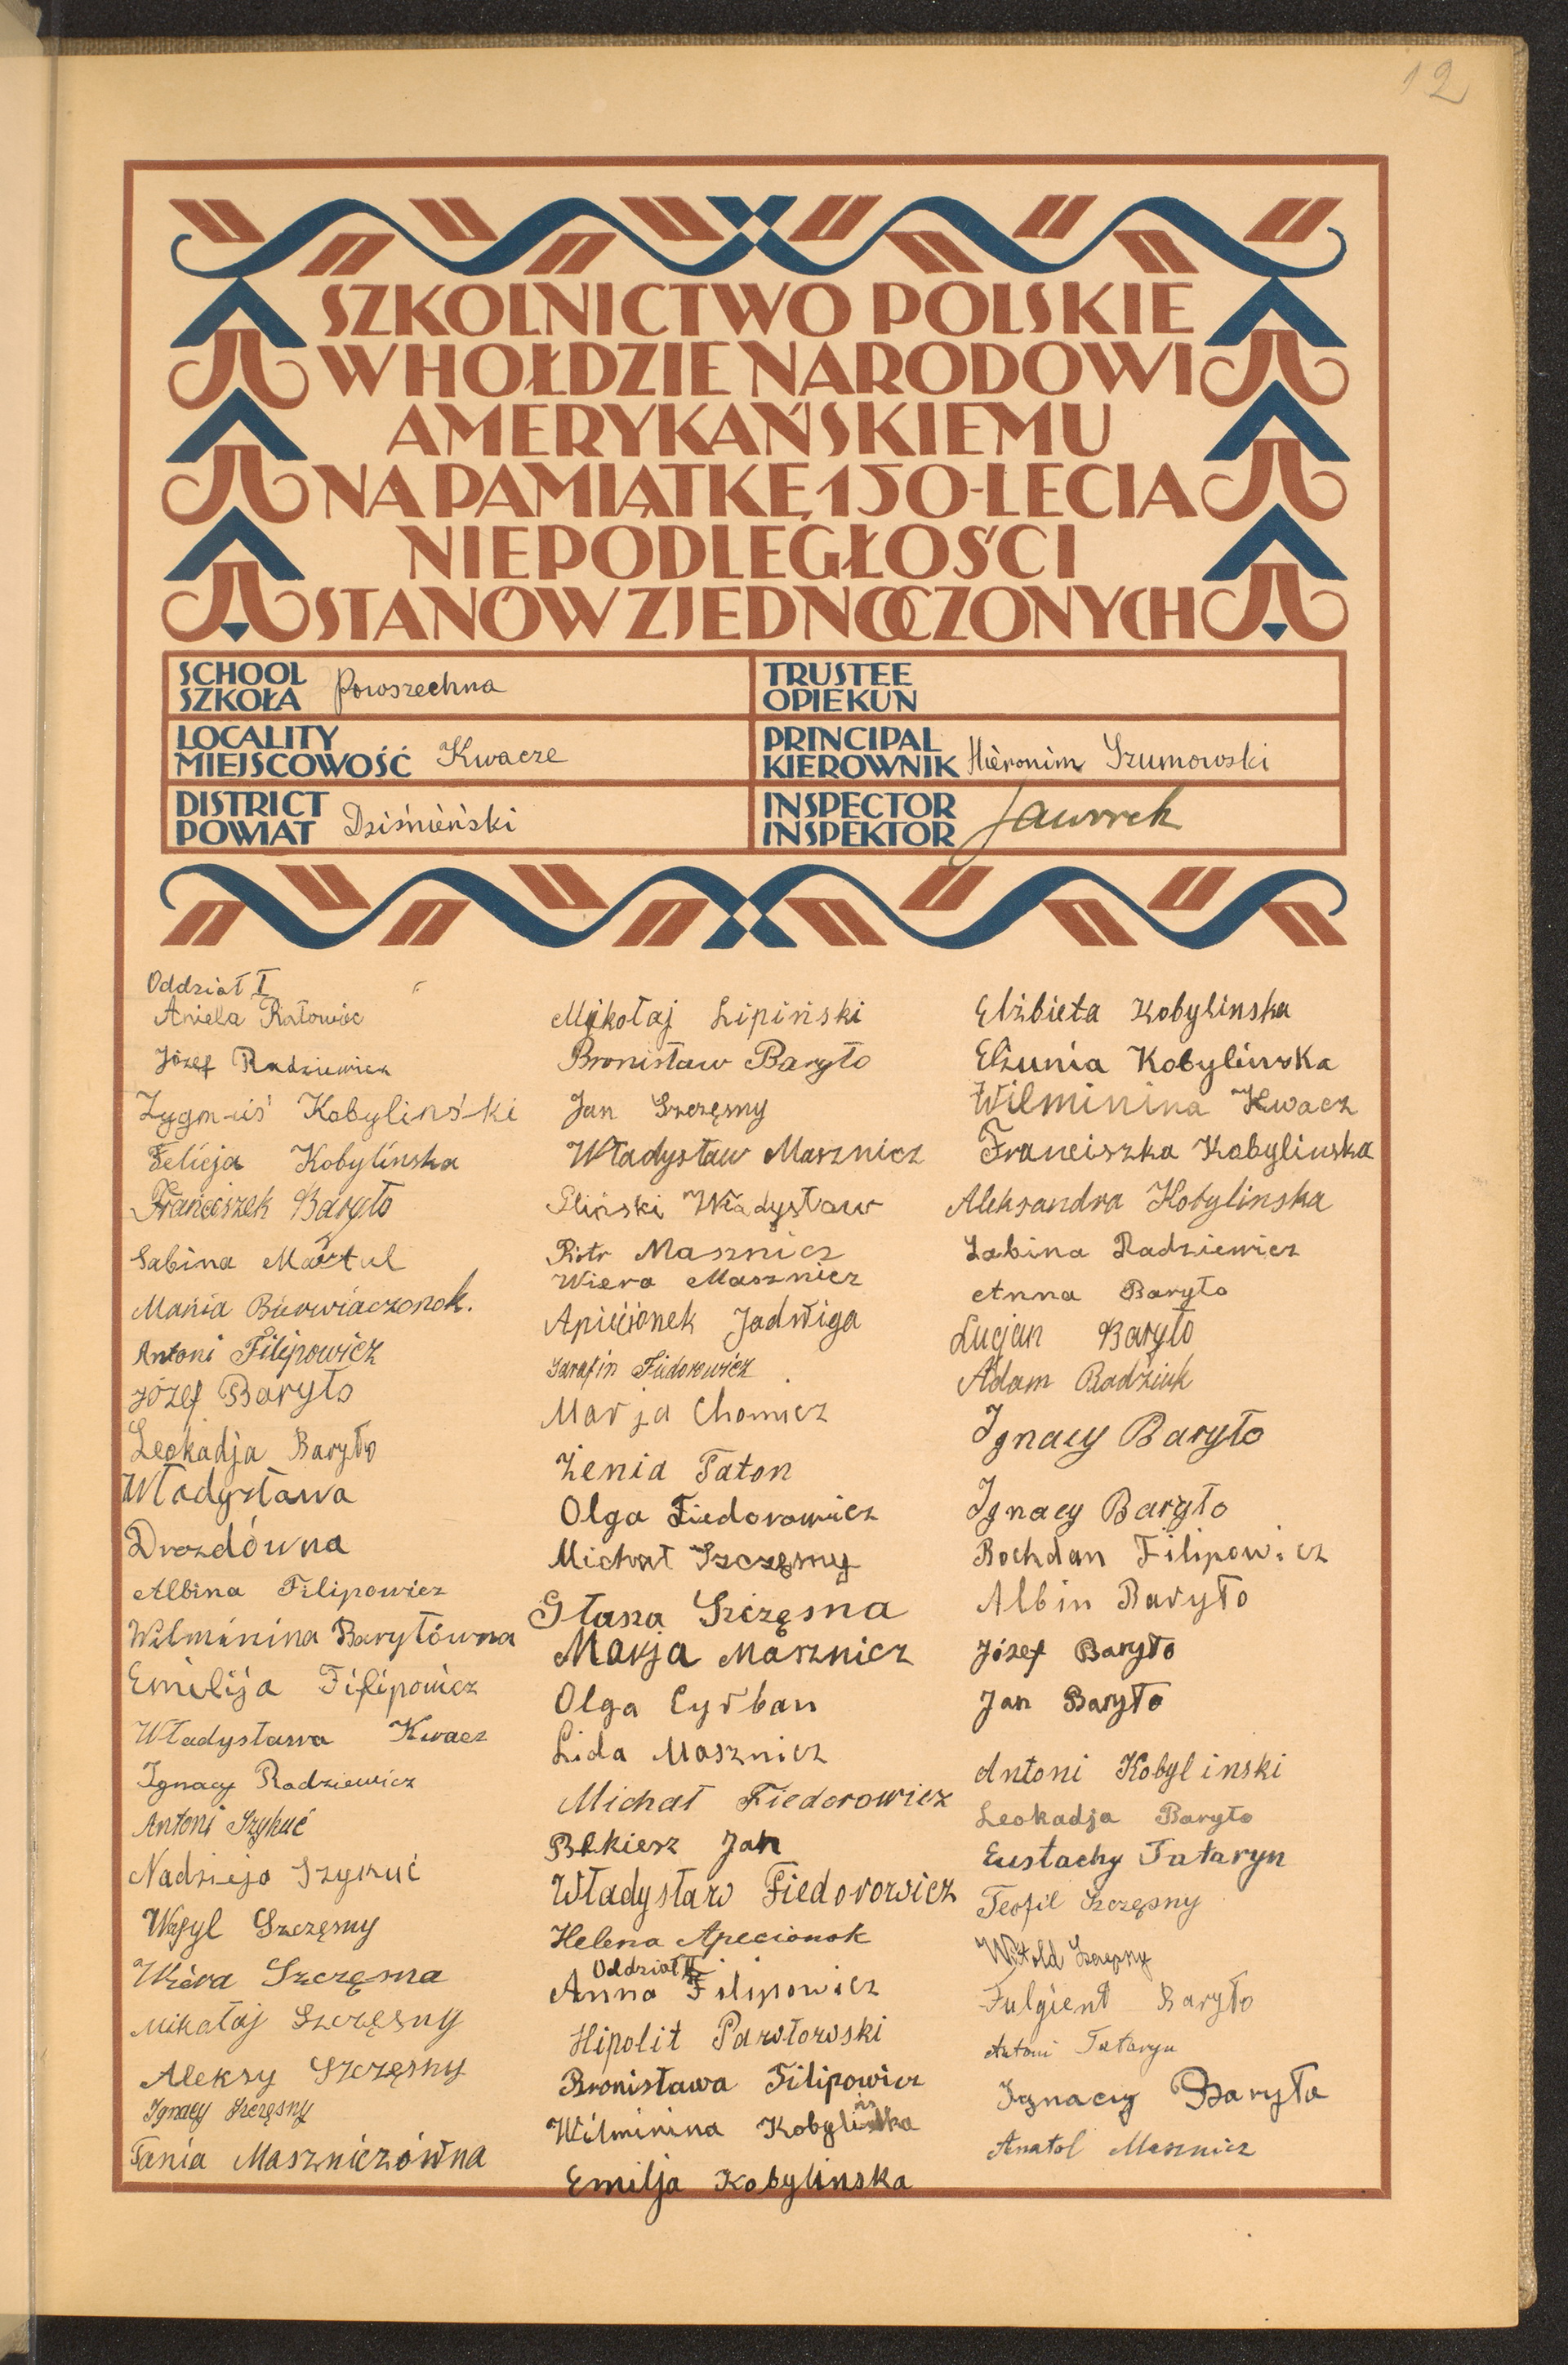 12
SZKOLNICTWO POLSKIE
W HOŁDZIE NARODOWI
AMERYKAŃSKIEMU
NA PAMIĄTKĘ 150-LECIA
NIEPODLEGŁOŚCI
STANÓW ZJEDNOCZONYCH
SCHOOL
SZKOŁA Powszechna
TRUSTEE
OPIEKUN
LOCALITY
MIEJSCOWOŚĆ Kwacze
PRINCIPAL
KIEROWNIK Hieronim Szumowski
DISTRICT
POWIAT Dziśnieński
INSPECTOR
INSPEKTOR
Oddział I
Aniela
Józef Radziewicz
Zygmuś Kobylinśki
Felicja Kobylińska
Franciszek Baryło
Sabina
Mania
Antoni Filipowicz
Józef Baryło
Leokadja Baryło
Władysława
Drozdówna
Albina Filipowicz
Wilminina Baryłówna
Emilija Filipowicz
Władysława Kwacz
Ignacy Radziewicz
Antoni Szykuć
Nadzieja Szykuć
Wasyl Szczęsny
Wiera Szczęsna
Mikołaj Szczęsny
Aleksy Szczęsny
Ignacy Szczęsny
Tania Maszniczówna
Mikołaj Lipiński
Bronisław Baryło
Jan Szczęsny
Władysław Masznicz
Śliński Władysław
Piotr Masznicz
Wiera Masznicz
Apiecionek Jadwiga
Sarafin Fiedorowicz
Marja Chomicz
Żenia Taton
Olga Fiedorowicz
Michał Szczęsny
Stasza Szczęsna
Marja Masznicz
Olga Cyrban
Lida Masznicz
Michał Fiedorowicz
Bekiesz Jan
Władysław Fiedorowicz
Helena Apecionok
Oddział II
Anna Filipowicz
Hipolit Pawłowski
Bronisława Filipowicz
Wilminina Kobylińska
Emilja Kobylinska
Elżbieta Kobylinska
Elżunia Kobylinska
Wilminina Kwacz
Franciszka Kobylinska
Aleksandra Kobylinska
Sabina Radziewicz
Anna Baryło
Lucjan Baryło
Adam Radziuk
Ignacy Baryło
Ignacy Baryło
Bochdan Filipowicz
Albin Baryło
Józef Baryło
Jan Baryło
Antoni Kobylinski
Leokadja Baryło
Eustachy Tataryn
Teofil Szczęsny
Witold Szczęsny
Fulgient Baryło
Antoni Tataryn
Ignacy Baryło
Anatol Masznicz